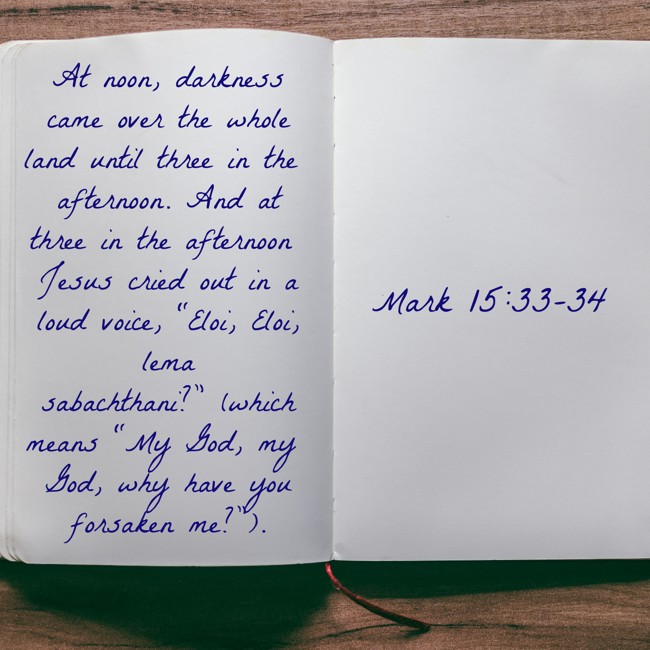 At noon, darkness
came over the whole
land until three in the
afternoon. And at
three in the afternoon
Jesus cried out in a
loud voice, “Eloi, Eloi,
lema
sabachthani?” (which
means “My God, my
God, why have you
forsaken me?”).
Mark 15:33-34